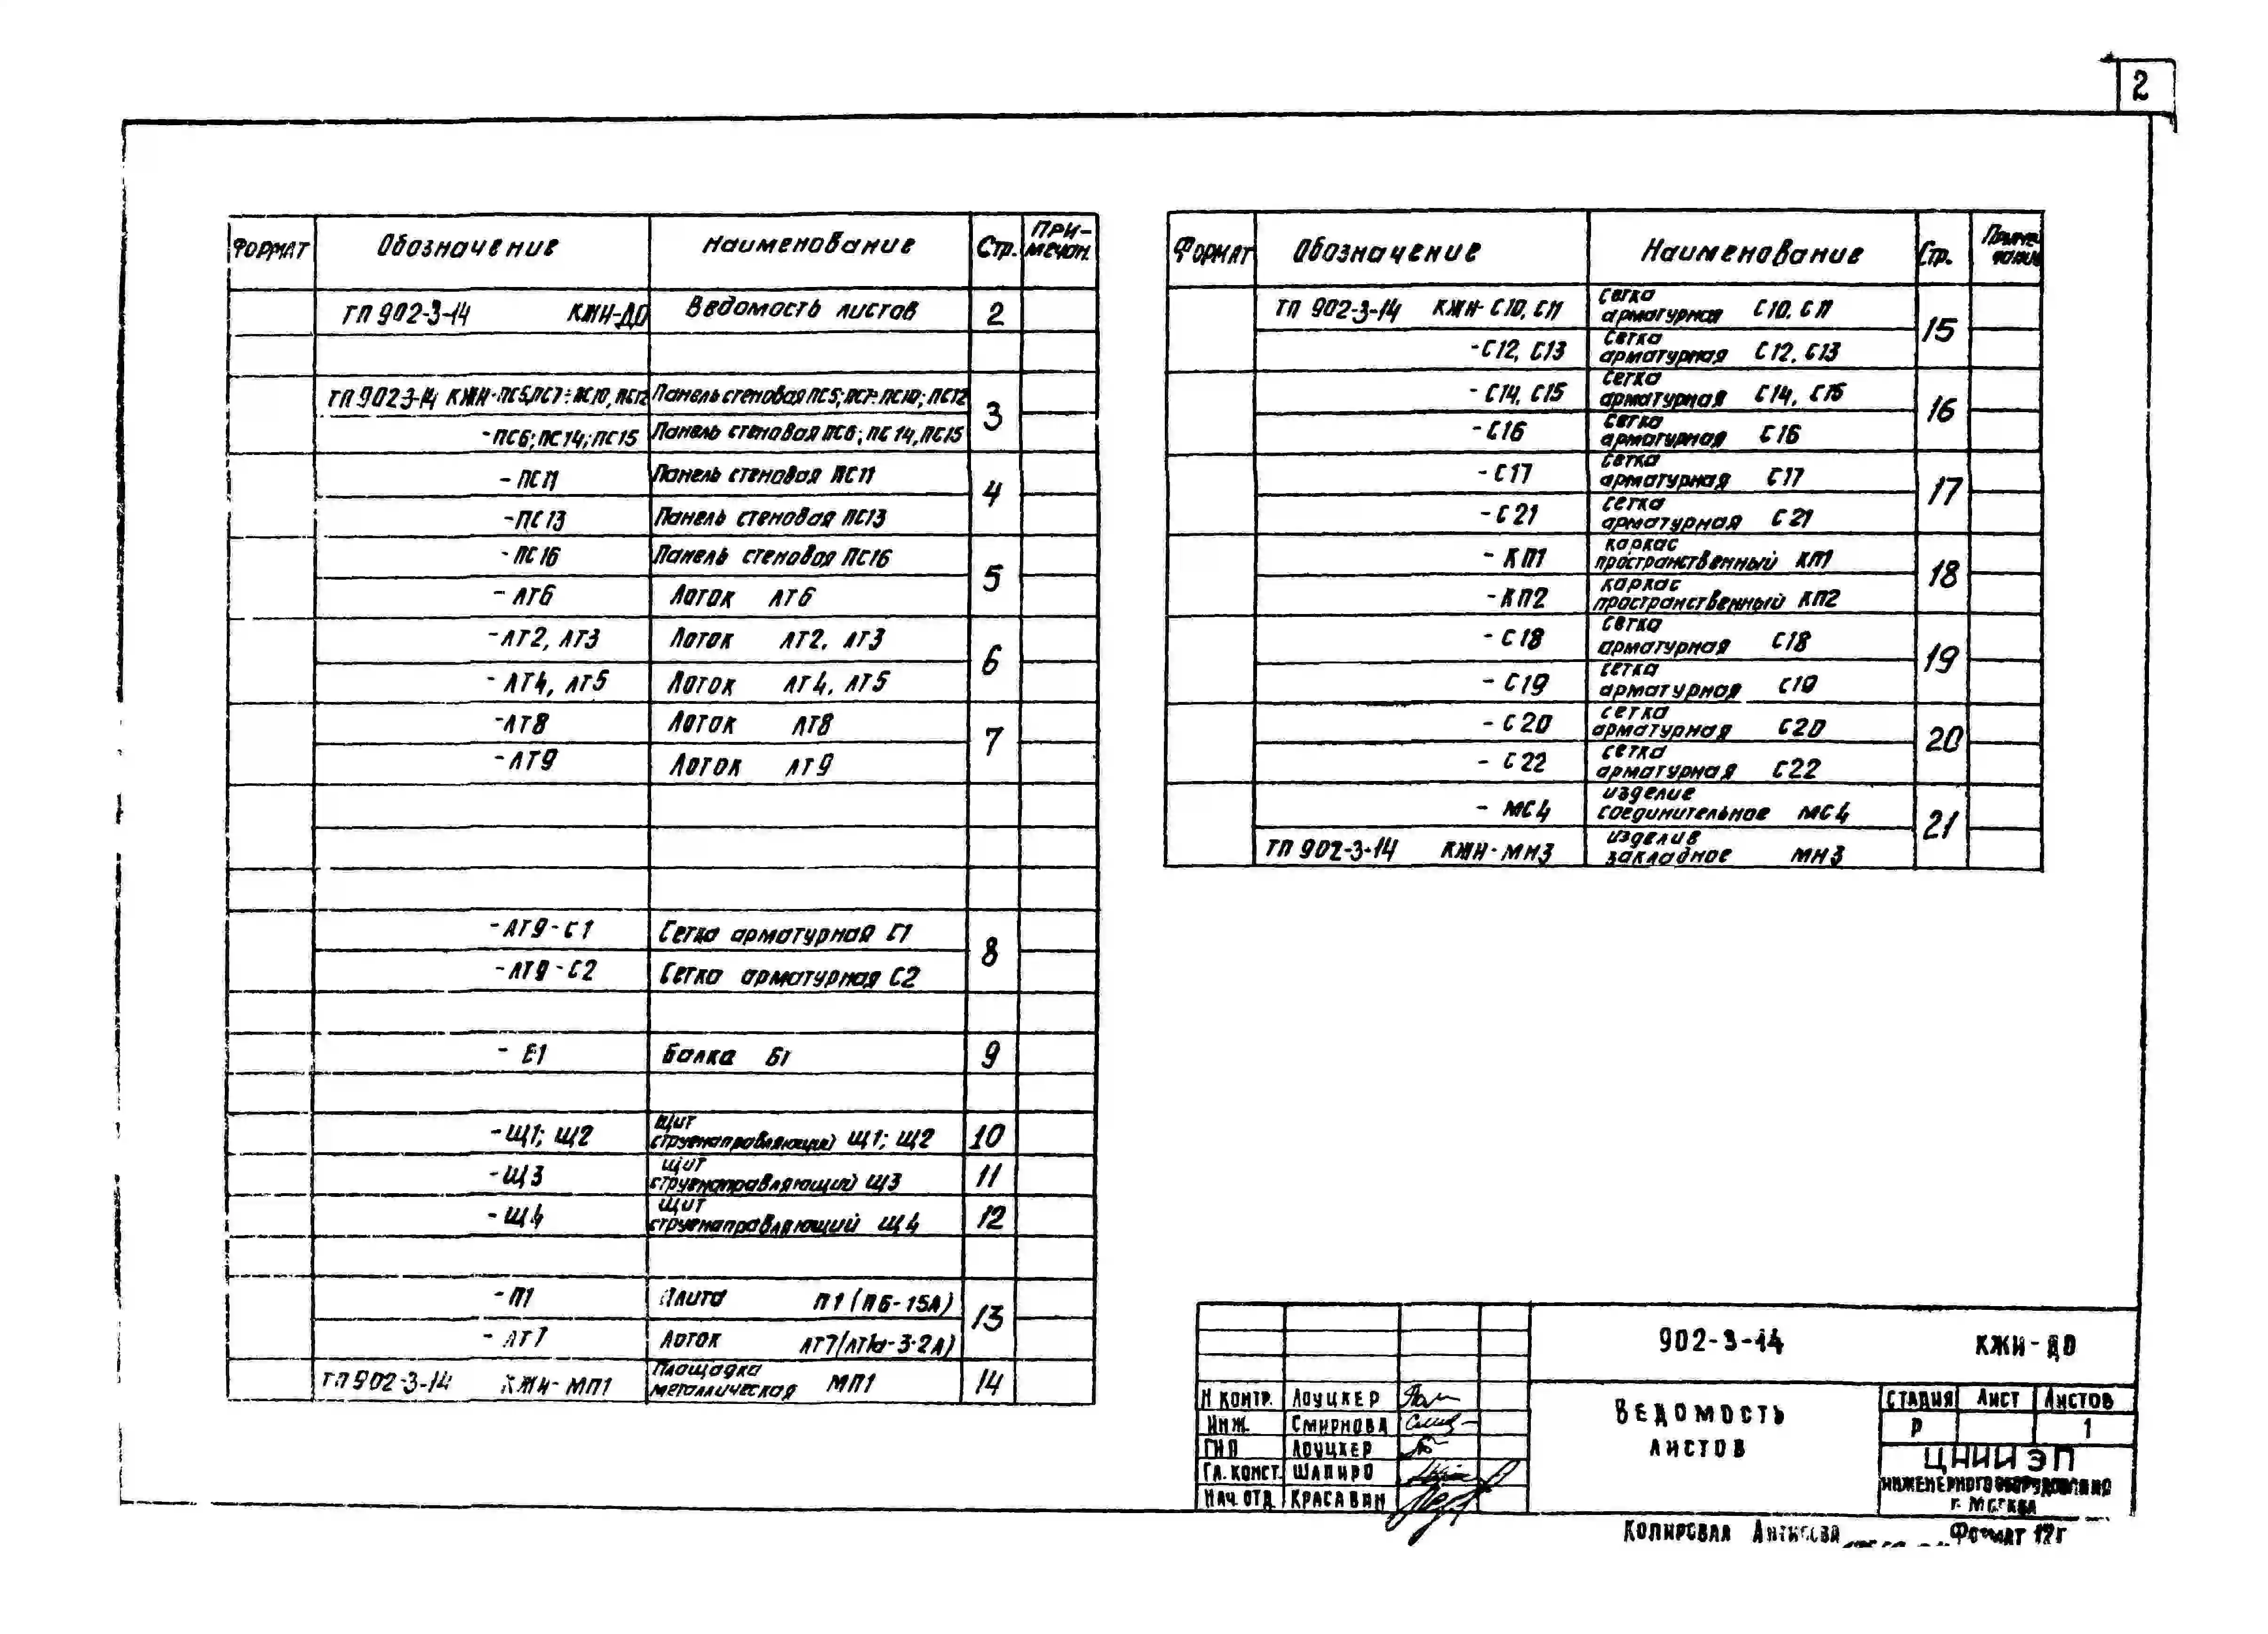 2
Формат Обозначение Наименование Стр. Примечан.
ТП 902-3-14 КЖИ-ДО Ведомость листов 2
ТП 902-3-14 КЖИ-ПС5,ПС7÷ПС10,ПС12 Панель стеновая ПС5; ПС7÷ПС10; ПС12 3
-ПС6; ПС14; ПС15 Панель стеновая ПС6; ПС14, ПС15
-ПС11 Панель стеновая ПС11 4
-ПС13 Панель стеновая ПС13
-ПС16 Панель стеновая ПС16 5
-ЛТ6 Лоток ЛТ6
-ЛТ2, ЛТ3 Лоток ЛТ2, ЛТ3 6
-ЛТ4, ЛТ5 Лоток ЛТ4, ЛТ5
-ЛТ8 Лоток ЛТ8 7
-ЛТ9 Лоток ЛТ9
-ЛТ9-С1 Сетка арматурная С1 8
-ЛТ9-С2 Сетка арматурная С2
-Б1 Балка Б1 9
-Щ1; Щ2 Щит струенаправляющий Щ1; Щ2 10
-Щ3 Щит струенаправляющий Щ3 11
-Щ4 Щит струенаправляющий Щ4 12
-П1 Плита П1 (ПБ-15А) 13
-ЛТ7 Лоток ЛТ7
ТП 902-3-14 КЖИ-МП1 Площадка металлическая МП1 14
Формат Обозначение Наименование Стр. Примечание
ТП 902-3-14 КЖИ-С10, С11 Сетка арматурная С10, С11 15
-С12, С13 Сетка арматурная С12, С13
-С14, С15 Сетка арматурная С14, С15 16
-С16 Сетка арматурная С16
-С17 Сетка арматурная С17 17
-С21 Сетка арматурная С21
-КП1 каркас пространственный КП1 18
-КП2 каркас пространственный КП2
-С18 Сетка арматурная С18 19
-С19 Сетка арматурная С19
-С20 Сетка арматурная С20 20
-С22 Сетка арматурная С22
-МС4 изделие соединительное МС4 21
ТП 902-3-14 КЖИ-МН3 изделие закладное МН3
902-3-14 КЖИ-ДО
Н контр. Лоуцкер
Инж. Смирнова
ГИП Лоуцкер
Гл. конст. Шапиро
Нач. отд. Красавин
Ведомость
листов
Стадия Лист Листов
Р 1
ЦНИИЭП
инженерного оборудования
г. Москва
Копировал Формат 12г